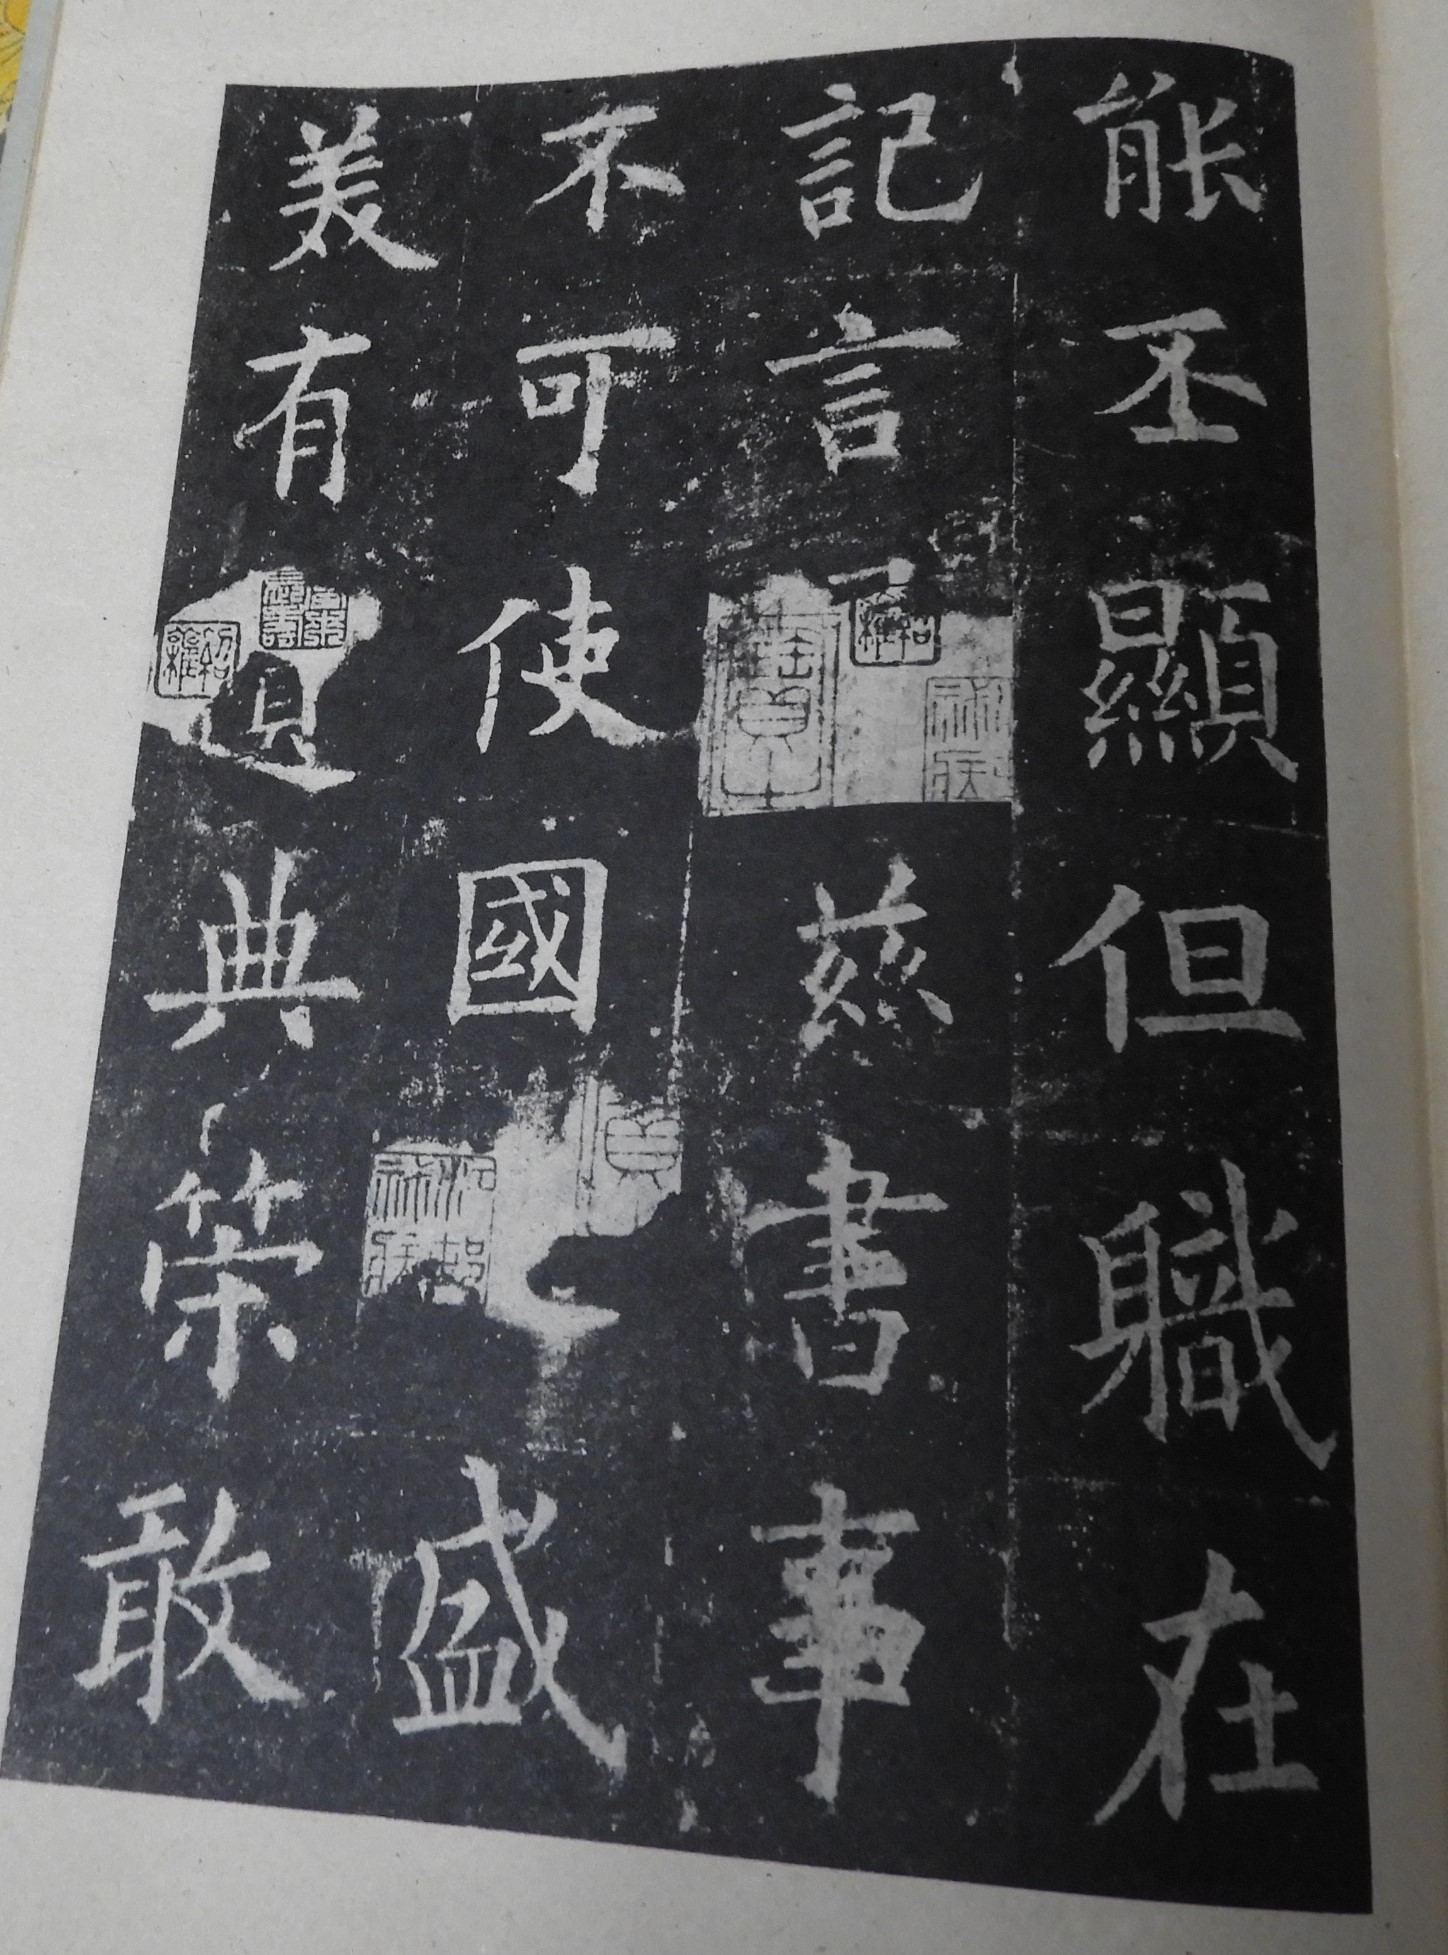 能丕顯但職在
記言 兹書事
不可使國 盛
美有 典策敢